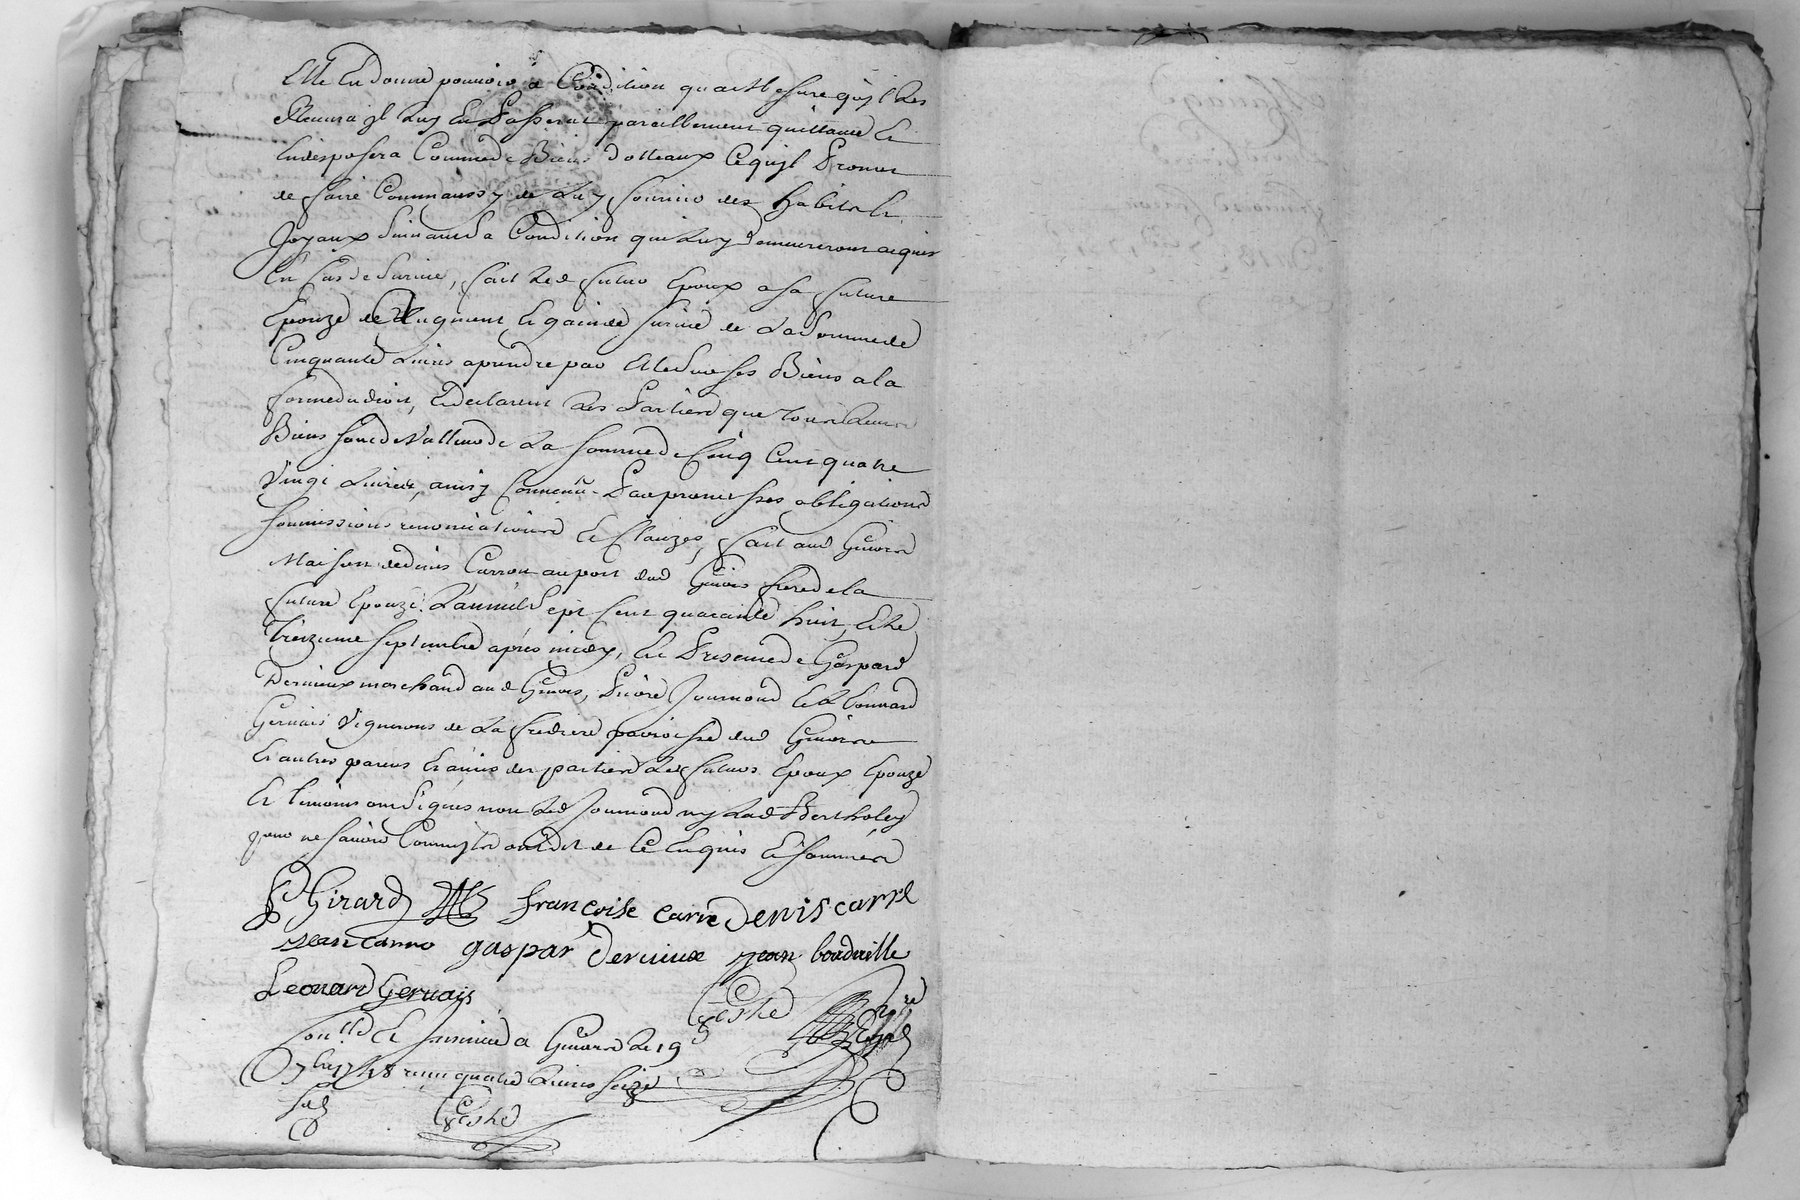 Elle En donne pouvoir a Condition quamesure quil Les
Recevra jl Luy En Passera pareillement quittance Et
Endisposera Comme de Biens dotteaux Ce qujl Promet
de faire Comm'aussy de Luy fournir des habits Et
Joyaux suivant sa Condition qui Luy demeureront acquis
En Cas de survie, fait Led futur Epoux a sa future
Epouze de Augment Et gain de survie de La somme de
Cinquante Livres aprendre par Elle sur ses Biens a la
forme du droit, Et declarent Les Parties que tous Leurs
Biens sont de Valleur de La somme de Cinq Cent quatre
Vingt Livres, ainsy Convenu Par promesses obligations
soumissions renonciations Et Clauzes, fait aud Givors
Maison de denis Carron au port dud Givors frere de la
future Epouze L'an mil sept Cent quarante huit, Et Le
Treizieme septembre après midy, En Presence de Gaspard
Dervieux marchand aud Givors, Journoud Et Leonard
Gervais Vignerons de La paroisse dud Givors
Et autres parens Et amis des parties Les futurs Epoux Epouze
Et temoins ont signés non Led Journoud ny Lad Bertholey
pour ne savoir Comm'jls ont dit de Ce Enquis Et sommés
Girard françoise carre Denis carre
Jean carro gaspar Dervieux jean
Leonard Gervais
Con.llé Et a Givors Le 19
7bre 1748 reçu quatre Livres seize
sols